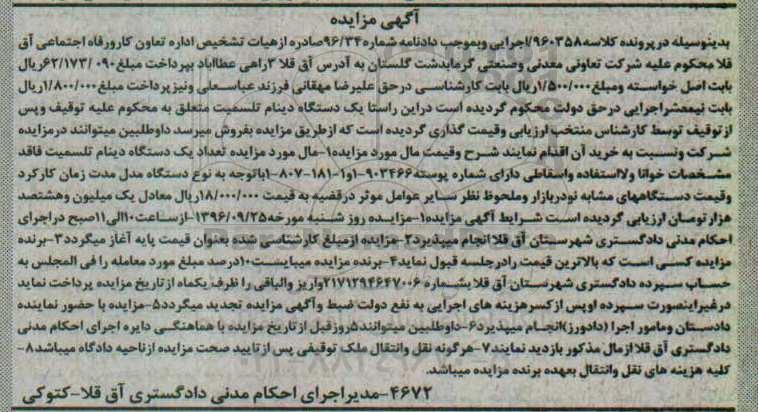 آگهی مزایده
بدینوسیله در پرونده کلاسه ۹۶۰۳۵۸/اجرایی وبموجب دادنامه شماره ۹۶/۳۴صادره ازهیات تشخیص اداره تعاون کاورفاه اجتماعی آق
قلا محکوم علیه شرکت تعاونی معدنی وصنعتی گرمابدشت گلستان به آدرس آق قلا ۳راهی عطااباد بپرداخت مبلغ۶۲/۱۷۳/۰۹۰ریال
بابت اصل خواسته ومبلغ۱/۵۰۰/۰۰۰ریال بابت کارشناسی درحق علیرضا مهقانی فرزند عباسعلی ونیزپرداخت مبلغ۱/۸۰۰/۰۰۰ریال
بابت نیمعشراجرایی درحق دولت محکوم گردیده است دراین راستا یک دستگاه دینام تلسمیت متعلق به محکوم علیه توقیف وپس
ازتوقیف توسط کارشناس منتخب ارزیابی وقیمت گذاری گردیده است که ازطریق مزایده بفروش میرسد داوطلبین میتوانند درمزایده
شرکت ونسبت به خرید آن اقدام نمایند شرح وقیمت مال مورد مزایده۱-مال مورد مزایده تعداد یک دستگاه دینام تلسمیت فاقد
مشخصات خوانا ولااستفاده واسقاطی دارای شماره پوسته۹۰۳۴۶۶-۱و۱-۱۸۱-۸۰۷-۱باتوجه به نوع دستگاه مدل مدت زمان کارکرد
وقیمت دستگاههای مشابه نودربازار وملحوظ نظر سایر عوامل موثر درقضیه به قیمت ۱۸/۰۰۰/۰۰۰ریال معادل یک میلیون وهشتصد
هزار تومان ارزیابی گردیده است شرایط آگهی مزایده۱-مزایده روز شنبه مورخه۱۳۹۶/۰۹/۲۵-ازساعت۱۰الی۱۱صبح دراجرای
احکام مدنی دادگستری شهرستان آق قلا انجام میپذیرد۲-مزایده ازمبلغ کارشناسی شده بعنوان قیمت پایه آغاز میگردد۳-برنده
مزایده کسی است که بالاترین قیمت رادرجلسه قبول نماید۴-برنده مزایده میبایست۱۰درصد مبلغ مورد معامله را فی المجلس به
حساب سپرده دادگستری شهرستان آق قلا بشماره ۲۱۷۱۲۹۴۶۴۷۰۰۶واریز والباقی را ظرف یکماه ازتاریخ مزایده پرداخت نماید
درغیراینصورت سپرده اوپس ازکسرهزینه های اجرایی به نفع دولت ضبط وآگهی مزایده تجدید میگردد۵-مزایده با حضور نماینده
دادستان ومامور اجرا (دادورز)انجام میپذیرد۶-داوطلبین میتوانند۵روزقبل ازتاریخ مزایده با هماهنگی دایره اجرای احکام مدنی
دادگستری آق قلا ازمال مذکور بازدید نمایند۷-هرگونه نقل وانتقال ملک توقیفی پس ازتایید صحت مزایده ازناحیه دادگاه میباشد۸-
کلیه هزینه های نقل وانتقال بعهده برنده مزایده میباشد.
۴۶۷۲-مدیراجرای احکام مدنی دادگستری آق قلا-کتوکی